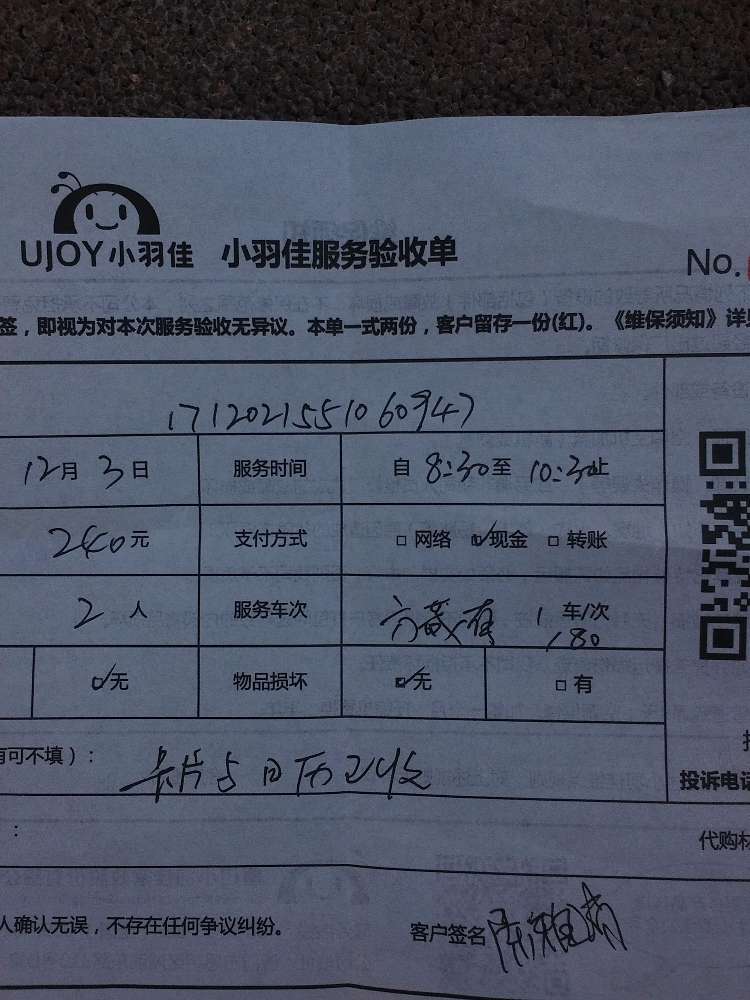 UJOY小羽佳 小羽佳服务验收单
No.
签，即视为对本次服务验收无异议。本单一式两份，客户留存一份(红)。《维保须知》详见
171202155106 0947
12月 3日 服务时间 自 8:30至 10:30止
240元 支付方式 □ 网络 ☑现金 □ 转账
2 人 服务车次 1 车/次
180
☑无 物品损坏 ☑无 □ 有
有可不填）：
卡片与日历已收
投诉电话
：
代购材
人确认无误，不存在任何争议纠纷。
客户签名